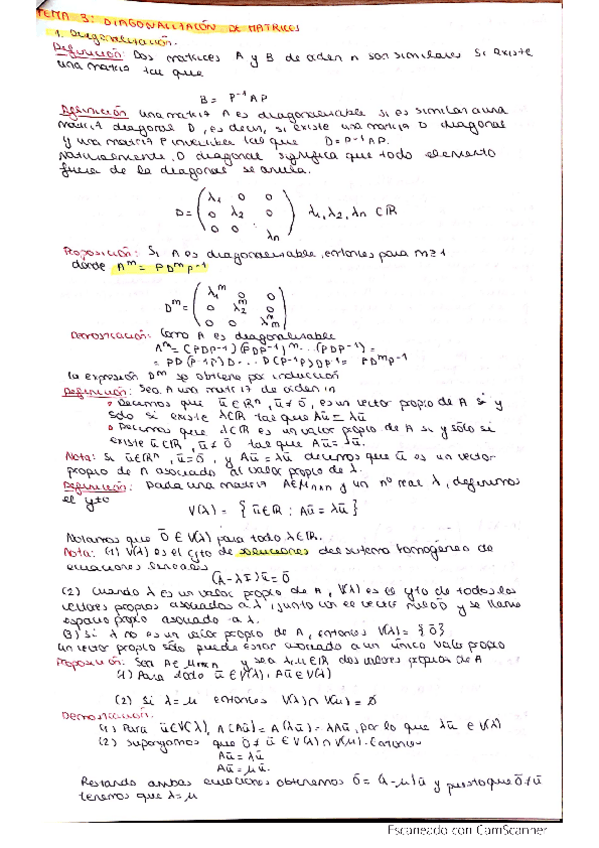 TEMA 3: DIAGONALIZACIÓN DE MATRICES
1. Diagonalización.
Definición: Dos matrices A y B de orden n son similares si existe
una matriz tal que
B = P⁻¹AP
Definición: una matriz A es diagonalizable si es similar a una
matriz diagonal D, es decir, si existe una matriz D diagonal
y una matriz P invertible tal que D = P⁻¹AP.
Naturalmente, D diagonal significa que todo elemento
fuera de la diagonal se anula.
D = ( λ1 0 0
0 λ2 0
0 0 λn ) λ1, λ2, λn ∈ℝ
Proposición: Si A es diagonalizable, entonces para m≥1
donde Aᵐ = PDᵐP⁻¹
Dᵐ = ( λ1ᵐ 0 0
0 λ2ᵐ 0
0 0 λnᵐ )
Demostración: Como A es diagonalizable
Aᵐ = (PDP⁻¹)(PDP⁻¹)ᵐ...(PDP⁻¹) =
= PD(P⁻¹P)D...D(P⁻¹P)DP⁻¹ = PDᵐP⁻¹
la expresión Dᵐ se obtiene por inducción
Definición: Sea A una matriz de orden n
• Decimos que ū∈ℝⁿ, ū≠0̄, es un vector propio de A si y
sólo si existe λ∈ℝ tal que Aū = λū
• Decimos que λ∈ℝ es un valor propio de A si y sólo si
existe ū∈ℝ, ū≠0̄ tal que Aū = λū.
Nota: Si ū∈ℝⁿ, ū=0̄, y Aū = λū decimos que ū es un vector
propio de A asociado al valor propio de λ.
Definición: Dada una matriz A∈Mn×n y un nº real λ, definimos
el cjto
V(λ) = { ū∈ℝ : Aū = λū }
Notamos que 0̄ ∈ V(λ) para todo λ∈ℝ.
Nota: (1) V(λ) es el cjto de soluciones del sistema homogéneo de
ecuaciones lineales
(A-λI)ū = 0̄
(2) Cuando λ es un valor propio de A, V(λ) es el cjto de todos los
vectores propios asociados a λ, junto con el vector nulo 0̄ y se llama
espacio propio asociado a λ.
(3) Si λ no es un valor propio de A, entonces V(λ) = {0̄}
Un vector propio sólo puede estar asociado a un único valor propio
Proposición: Sea A∈Mn×n y sea λ,μ∈ℝ dos valores propios de A
(1) Para todo ū∈V(λ), Aū∈V(λ)
(2) Si λ = μ entonces V(λ)∩V(μ) = ∅
Demostración:
(1) Para ū∈V(λ), A(Aū) = A(λū) = λAū, por lo que λū ∈ V(λ)
(2) supongamos que 0̄≠ū∈V(λ)∩V(μ). Entonces
Aū = λū
Aū = μū.
Restando ambas ecuaciones obtenemos 0̄ = (λ-μ)ū y puesto que 0̄≠ū
tenemos que λ=μ
Escaneado con CamScanner